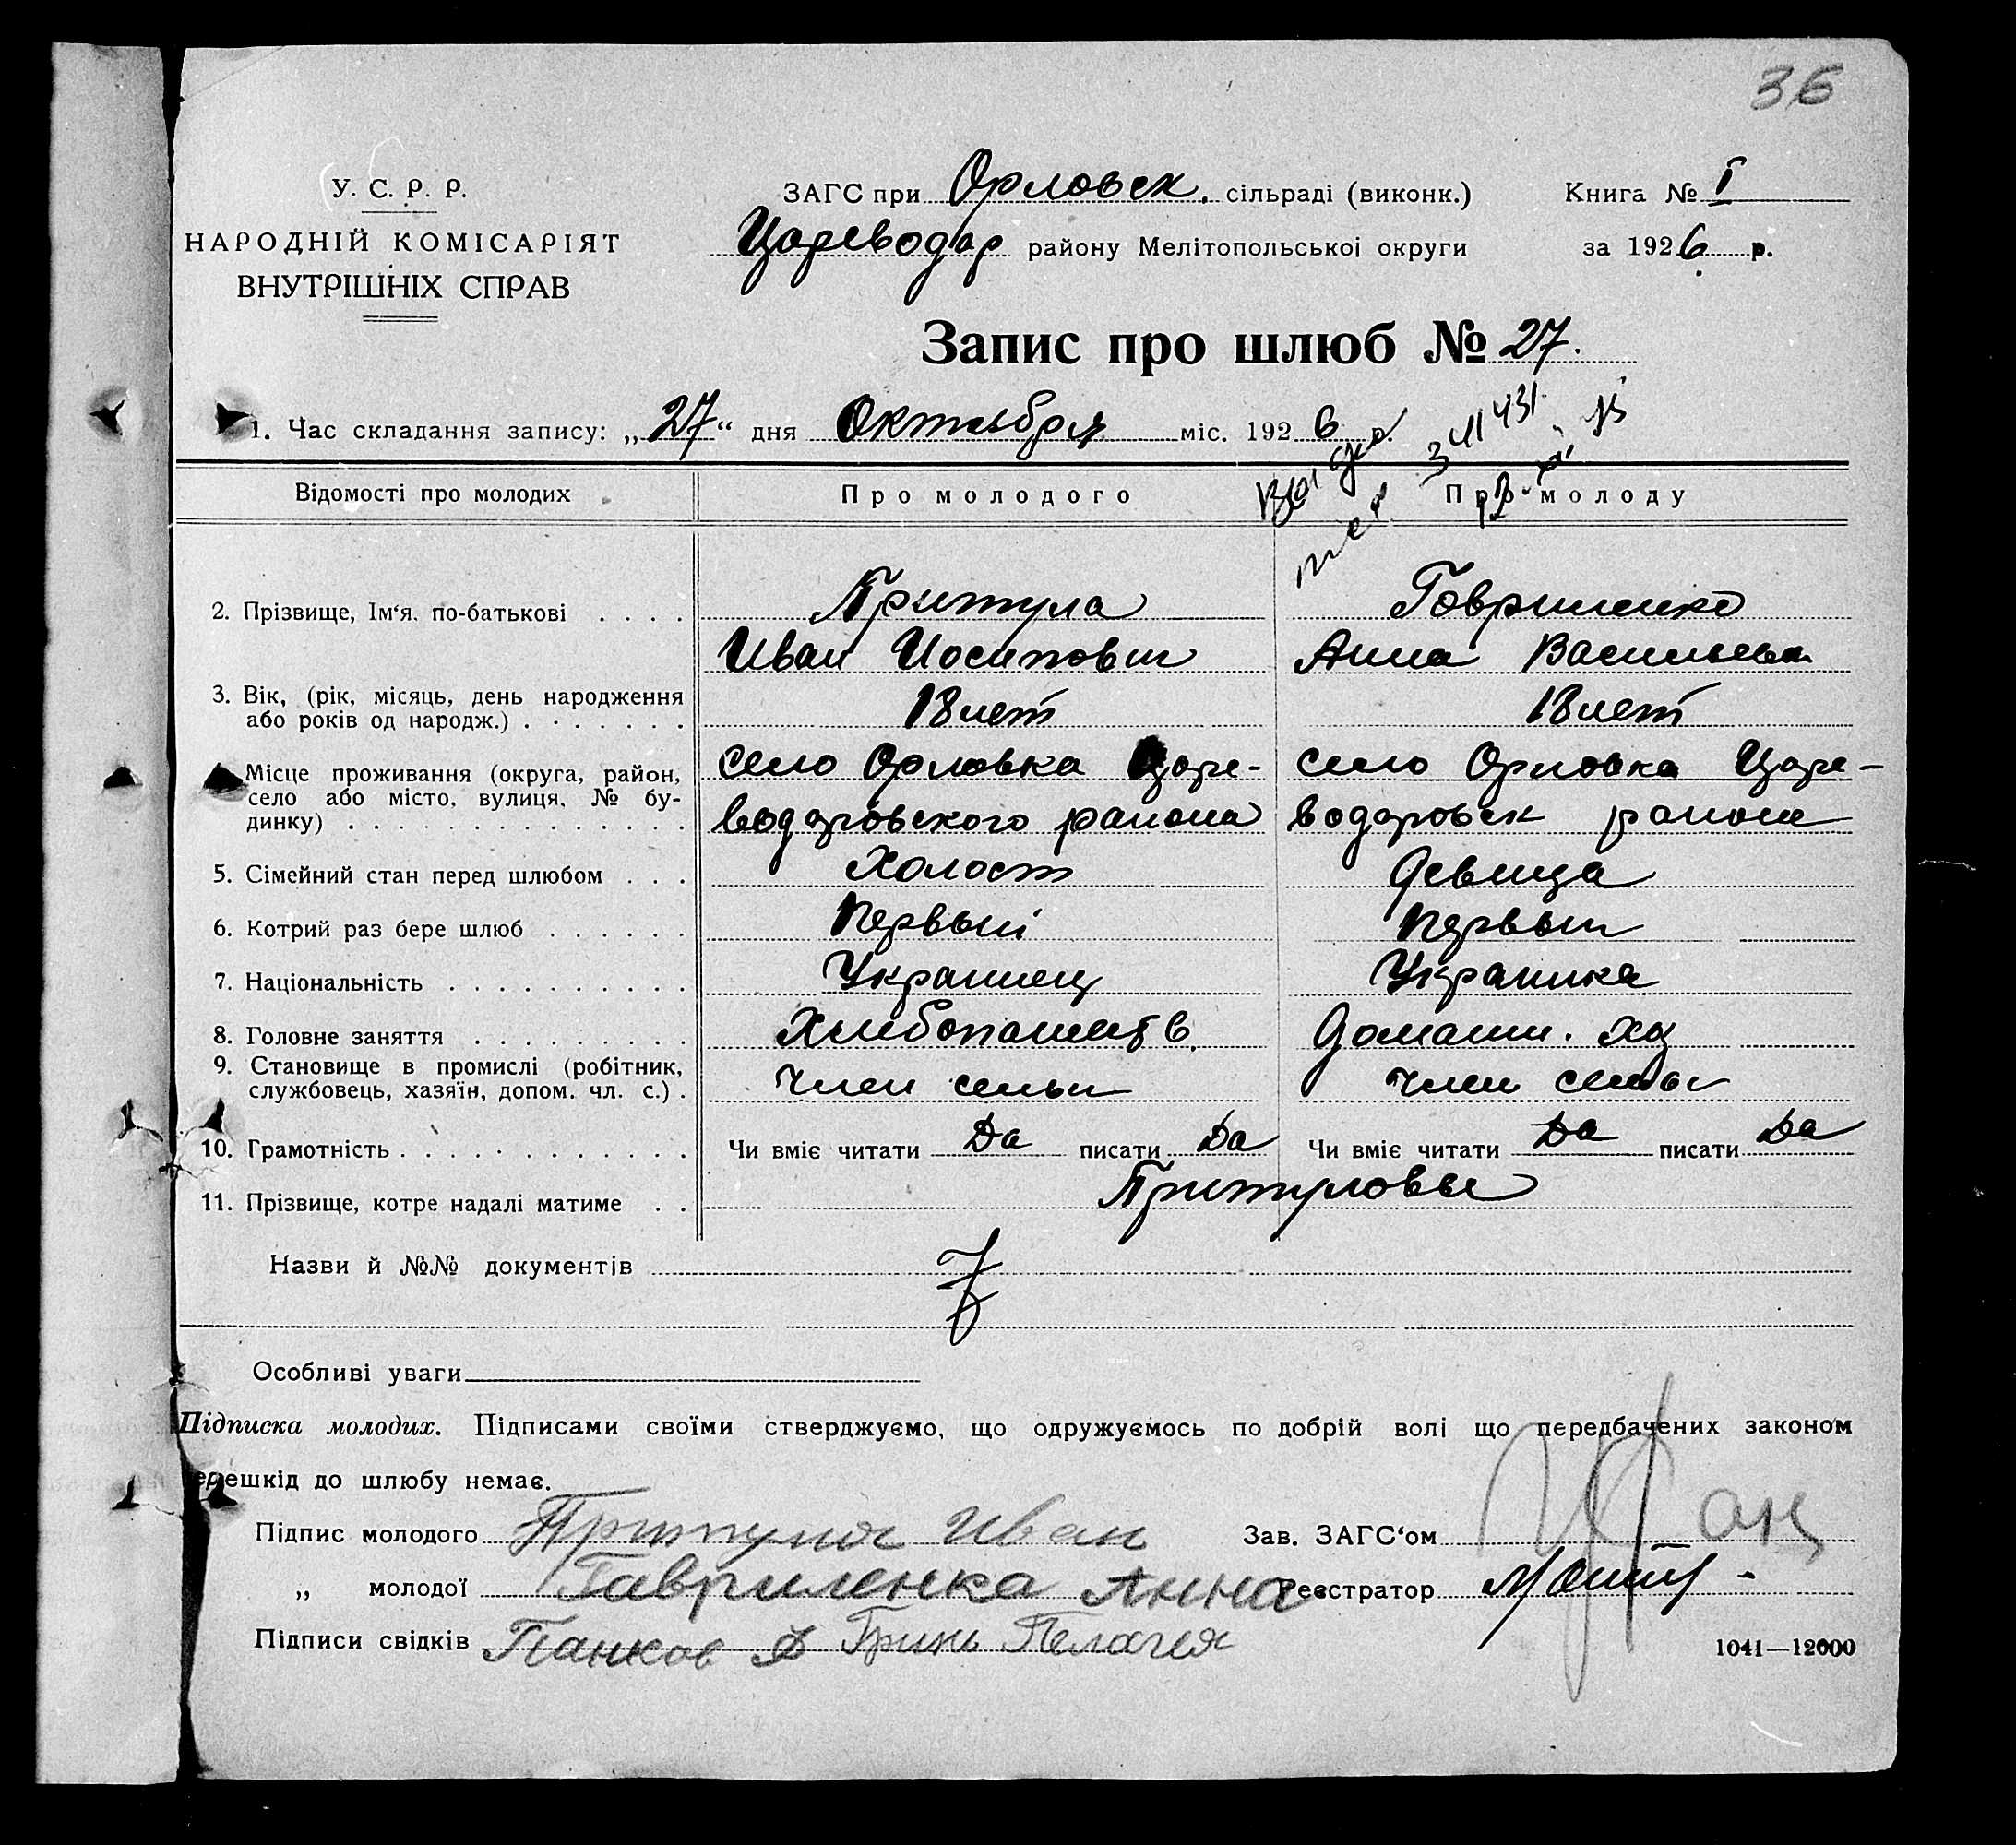 36
У. С. Р. Р.
НАРОДНІЙ КОМІСАРІЯТ
ВНУТРІШНІХ СПРАВ
ЗАГС при Орловск. сільраді (виконк.) Книга № I
Цареводар району Мелітопольськоі округи за 1926 р.
Запис про шлюб № 27.
1. Час складання запису: „27“ дня Октября міс. 1926 р.
Відомості про молодих Про молодого Про молоду
2. Прізвище, Ім‘я. по-батькові . . . . Притула Гавриленко
Иван Иосипович Анна Васильевн
3. Вік, (рік, місяць, день народження
або років од народж.) . . . . . . . 18 лет 18 лет
Місце проживання (округа, район, село Орловка Царе- село Орловка Царе-
село або місто, вулиця, № бу- водаровского района водаровск района
динку) . . . . . . . . . . . . . .
5. Сімейний стан перед шлюбом . . . Холост Девица
6. Котрий раз бере шлюб . . . . . . Первый Первый
7. Національність . . . . . . . . . . Украинец Украинка
8. Головне заняття . . . . . . . . . Хлебопашеств. Домашн. хоз
9. Становище в промислі (робітник,
службовець, хазяїн, допом. чл. с.) . Член семьи Член семьи
10. Грамотність . . . . . . . . . . . . Чи вміє читати Да писати Да Чи вміє читати Да писати Да
11. Прізвище, котре надалі матиме . . Притуловы
Назви й №№ документів
Особливі уваги
Підписка молодих. Підписами своїми стверджуємо, що одружуємось по добрій волі що передбачених законом
перешкід до шлюбу немає.
Підпис молодого Притула Иван Зав. ЗАГС‘ом
„ молодої Гавриленка Анна Реєстратор
Підписи свідків Панков Ф Гринь Пелагея 1041—12000